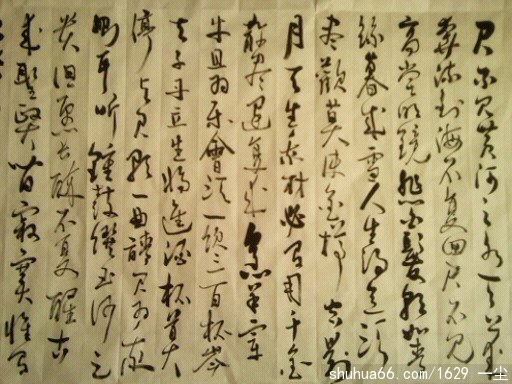 君不見黄河之水天上来
奔流到海不复回君不見
高堂明鏡悲白髮朝如青
絲暮成雪人生得意須
盡歡莫使金樽空對
月天生我材必有用千金
散盡還复来烹羊宰
牛且为乐會須一饮三百杯岑
夫子丹丘生將進酒杯莫
停与君歌一曲請君为我
側耳听鐘鼓饌玉何足
貴但愿长醉不复醒古
来聖賢皆寂寞惟有
shuhua66.com/1629 一尘